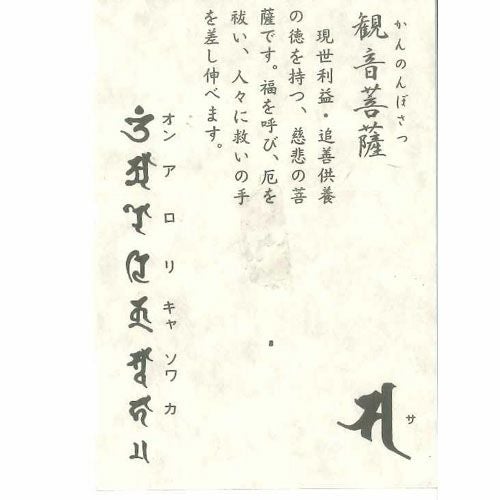 かんのんぼさつ
観音菩薩
現世利益・追善供養
の徳を持つ、慈悲の菩
薩です。福を呼び、厄を
祓い、人々に救いの手
を差し伸べます。
オン ア ロ リ キャ ソワ カ
サ